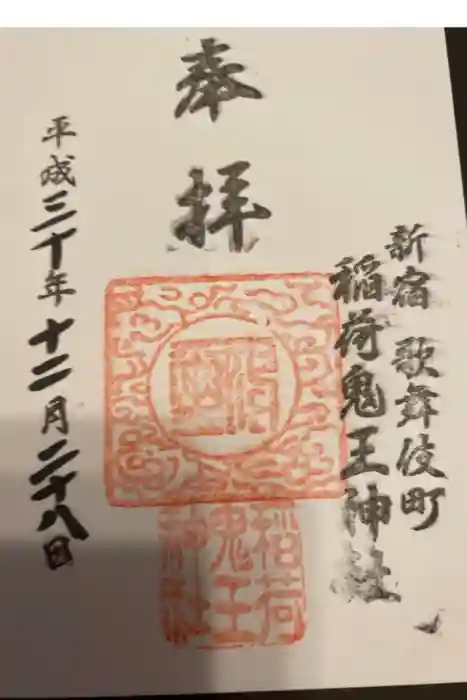 新宿 歌舞伎町
稲荷鬼王神社
奉拝
平成三十年十二月二十八日
稲荷
鬼王
神社